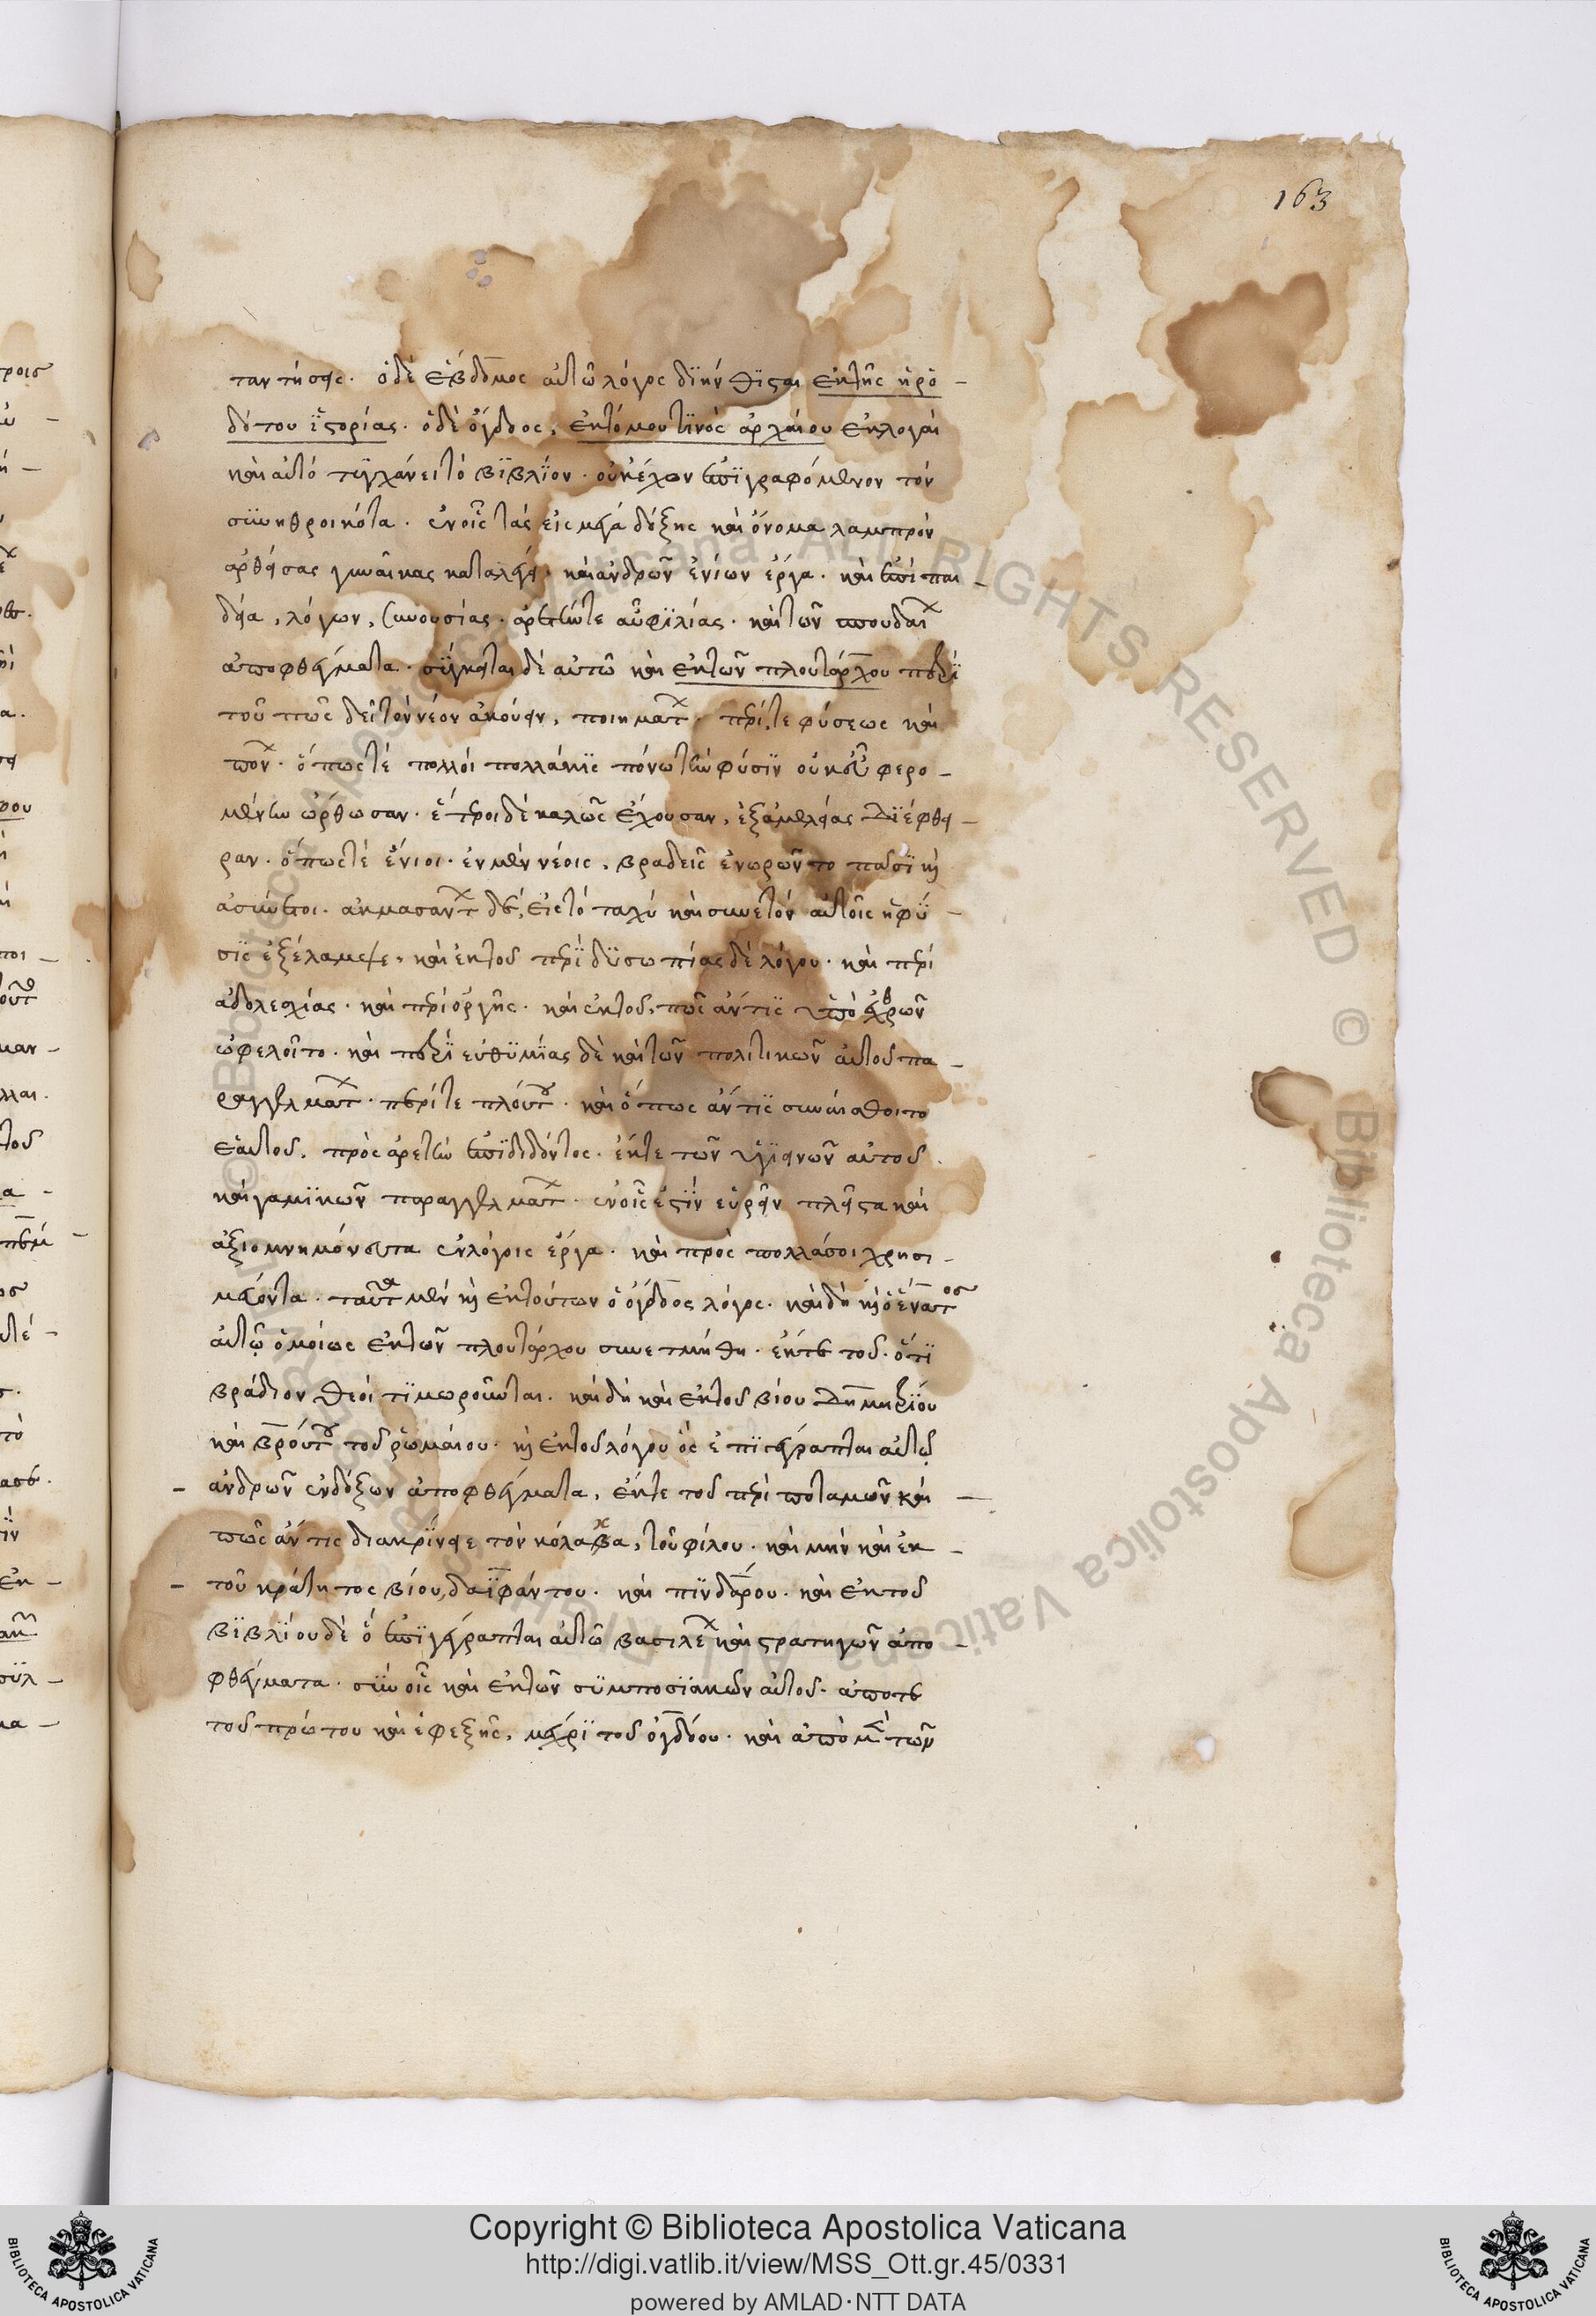 163
ταντήσει. ὁ δὲ ἕβδομος αὐτῶ λόγος διηνθισται ἐκ τῆς ἡρο-
δότου ἱστορίας. ὁ δὲ ὄγδοος, ἐκ τόμου τινὸς ἀρχαίου ἐκλογαὶ
καὶ αὐτὸ τυγχάνει τὸ βιβλίον. οὐκ ἔχον ἐπιγραφόμενον τὸν
συνηθροικότα. ἐν οἷς τὰς εἰς μέγα δόξης καὶ ὄνομα λαμπρὸν
ἀρθείσας γυναῖκας καταλέγει. καὶ ἀνδρῶν ἐνίων ἔργα. καὶ ἐπὶ παι-
δεία, λόγων, συνουσίας. ἀρετῶντε αὖ φιλίας. καὶ τῶν σπουδαί
ἀποφθέγματα. σύγκειται δὲ αὐτῶ καὶ ἐκ τῶν πλουτάρχου περὶ
τοῦ πῶς δεῖ τὸν νέον ἀκούειν, ποιημάτ. περίτε φύσεως καὶ
πόν. ὅπωςτε πολλοὶ πολλάκις πόνω τὴν φύσιν οὐκ εὖ φερο-
μένην ὤρθωσαν. ἕτεροι δὲ καλῶς ἔχουσαν, ἐξ ἀμελείας διέφθει-
ραν. ὅπωςτε ἔνιοι. ἐν μὲν νέοις, βραδεῖς ἐνωρῶντο πᾶσι καὶ
ἀσύνετοι. ἀκμάσαντ δὲ, εἰς τὸ ταχὺ καὶ συνετὸν αὐτοῖς ἡ φύ-
σις ἐξέλαμψε. καὶ ἐκ τοῦ περὶ δυσωπίας δὲ λόγου. καὶ περὶ
ἀδολεσχίας. καὶ περὶ ὀργῆς. καὶ ἐκ τοῦ, πῶς ἄν τις ὑπὸ ἐχθρῶν
ὠφελοῖτο. καὶ περὶ εὐθυμίας δὲ καὶ τῶν πολιτικῶν αὐτοῦ πα-
ραγγελμάτ. περίτε πλούτου. καὶ ὅπως ἄν τις συναίσθοιτο
ἑαυτοῦ, πρὸς ἀρετὴν ἐπιδιδόντος. ἔκτε τῶν ὑγιεινῶν αὐτοῦ
καὶ γαμικῶν παραγγελμάτ. ἐν οἷς ἐστὶν εὑρεῖν πλεῖστα καὶ
ἀξιομνημόνευτα ἐν λόγοις ἔργα. καὶ πρὸς πολλά σοι χρησι-
μεύοντα. ταῦτα μὲν καὶ ἐκ τούτων ὁ ὄγδοος λόγος. καὶ δὴ καὶ ὁ ἔνατος
αὐτῶ ὁμοίως ἐκ τῶν πλουτάρχου συνετμήθη. ἔκτε τοῦ. ὅτι
βράδιον θεοὶ τιμωροῦνται. καὶ δὴ καὶ ἐκ τοῦ βίου δημητρίου
καὶ βρούτου τοῦ ῥωμαίου. καὶ ἐκ τοῦ λόγου ὃς ἐπιγέγραπται αὐτῶ
ἀνδρῶν ἐνδόξων ἀποφθέγματα, ἔκτε τοῦ περὶ ποταμῶν καὶ
πῶς ἄν τις διακρίνειε τὸν κόλακα, τοῦ φίλου. καὶ μὴν καὶ ἐκ-
τοῦ κράτητος βίου, δαϊφάντου. καὶ πινδάρου. καὶ ἐκ τοῦ
βιβλίου δὲ ὃ ἐπιγέγραπται αὐτῶ βασιλέ καὶ στρατηγῶν ἀπο-
φθέγματα. σὺν οἷς καὶ ἐκ τῶν συμποσιακῶν αὐτοῦ. ἀπότε
τοῦ πρώτου καὶ ἐφεξῆς, μέχρι τοῦ ὀγδόου. καὶ ἀπὸ μὲν τῶν
Copyright © Biblioteca Apostolica Vaticana
http://digi.vatlib.it/view/MSS_Ott.gr.45/0331
powered by AMLAD·NTT DATA